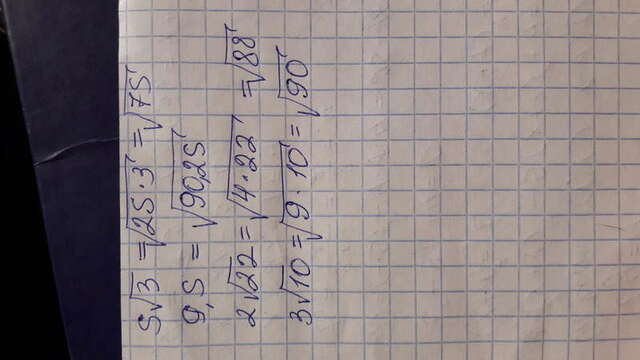 5√3 = √25·3 = √75
9,5 = √90,25
2√22 = √4·22 = √88
3√10 = √9·10 = √90